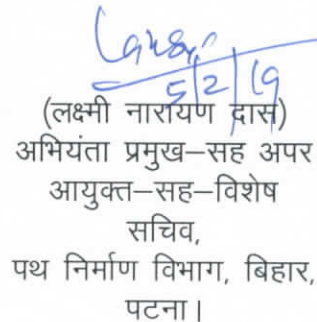 5/2/19
(लक्ष्मी नारायण दास)
अभियंता प्रमुख–सह अपर
आयुक्त–सह–विशेष
सचिव,
पथ निर्माण विभाग, बिहार,
पटना।